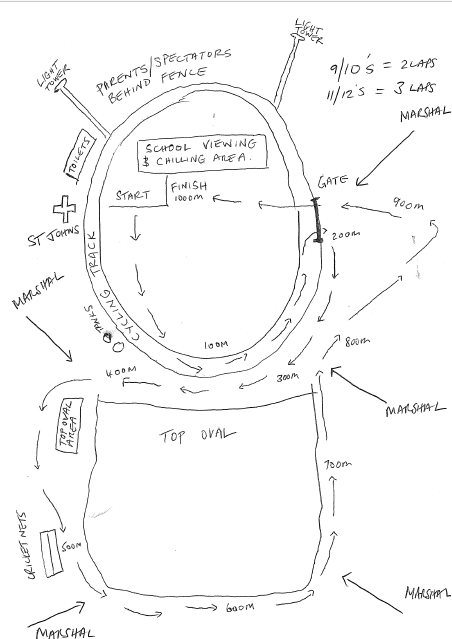 LIGHT
TOWER
LIGHT
TOWER
PARENTS/SPECTATORS
BEHIND FENCE
9/10's = 2 LAPS
11/12's = 3 LAPS
MARSHAL
TOILETS
SCHOOL VIEWING
& CHILLING AREA.
START
FINISH
1000m
GATE
900m
200m
ST JOHNS
CYCLING TRACK
TANKS
MARSHAL
100M
800m
300m
400m
MARSHAL
TOP OVAL
AREA
TOP OVAL
700m
CRICKET NETS
500m
600m
MARSHAL
MARSHAL